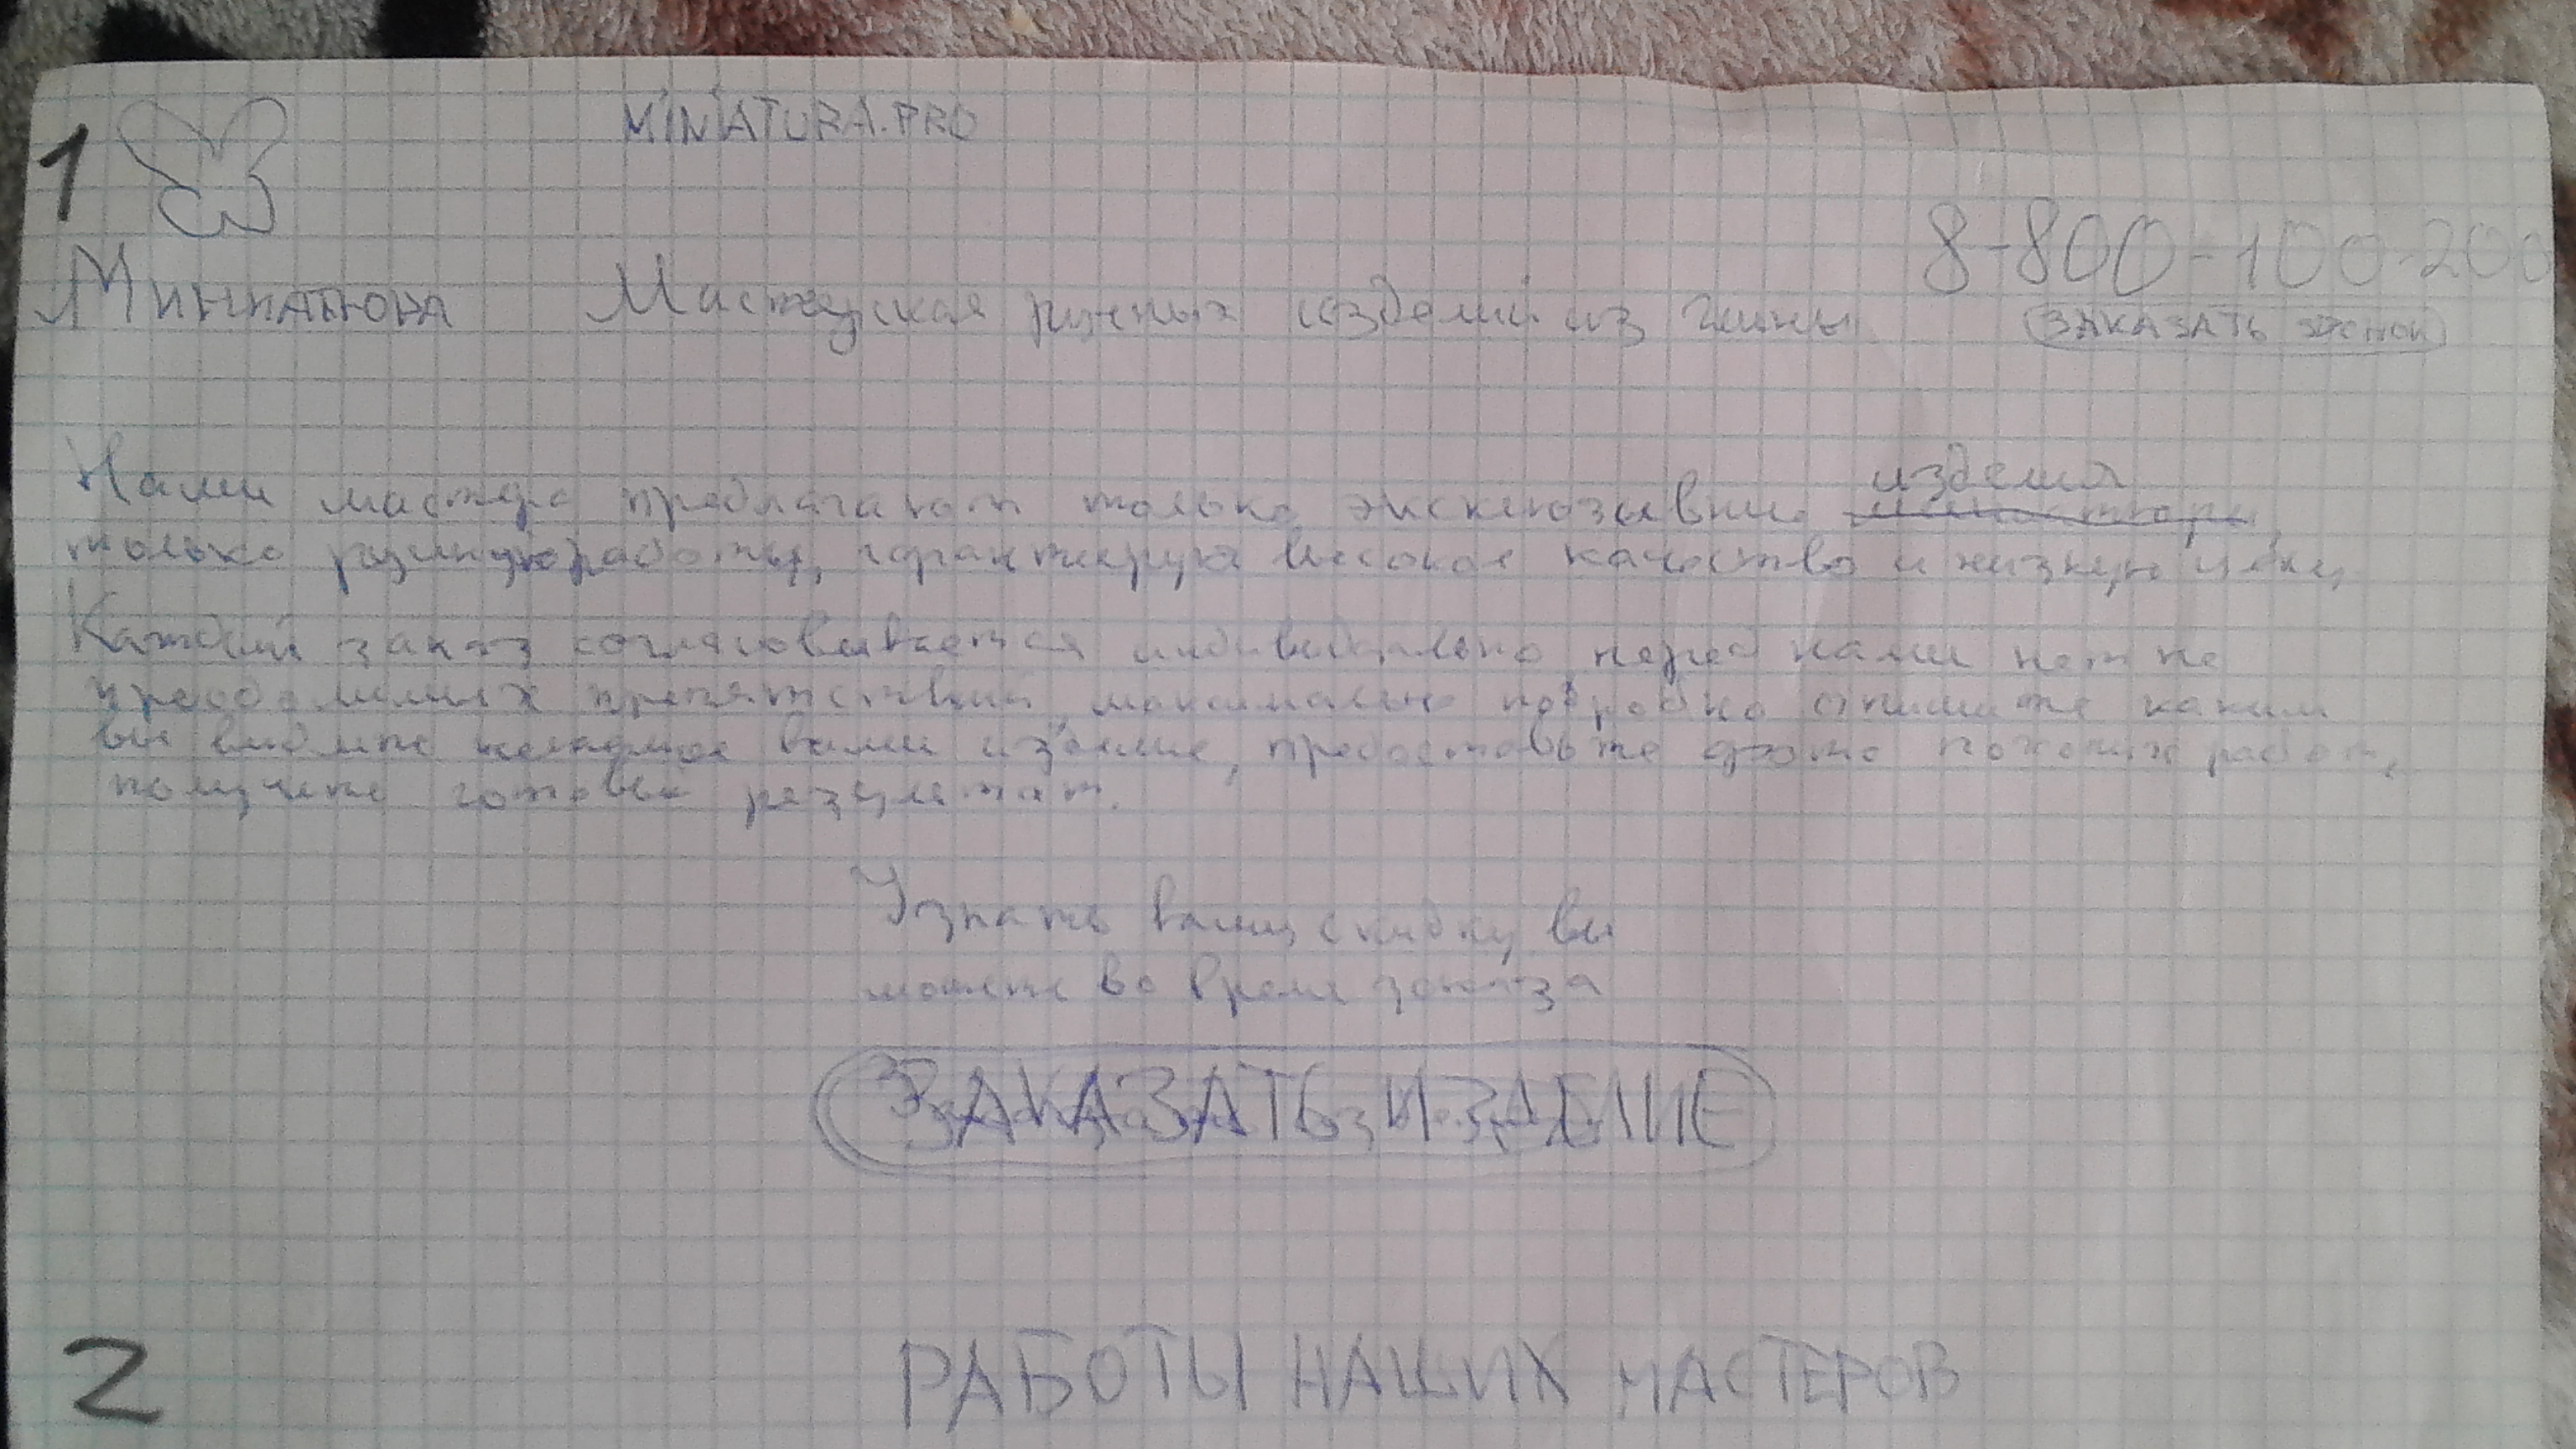 1
MINIATURA.PRO
8-800-100-200
Мастерская ручных изделий из глины
ЗАКАЗАТЬ ЗВОНОК
изделия
Наши мастера предлагают только эксклюзивные
только ручную работы, гарантирую высокое качество и низкую цену,
Каждый заказ согласовывается индивидально перед нами нет не
преодолимых препятствий, максимально подробно опишите каким
вы видите желаемое вами изделие, предоставьте фото похожих работ,
получите готовый результат.
Узнать вашу скидку вы
можете во время заказа
ЗАКАЗАТЬ ИЗДЕЛИЕ
2
РАБОТЫ НАШИХ МАСТЕРОВ